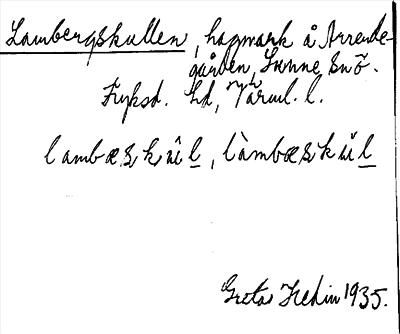 Lambergskullen, hagmark å Arrende-
gården, Sunne snö.
Fryksd. hd, Värml. l.
lambæskùl, làmbæskùl
Greta Hedin 1935.